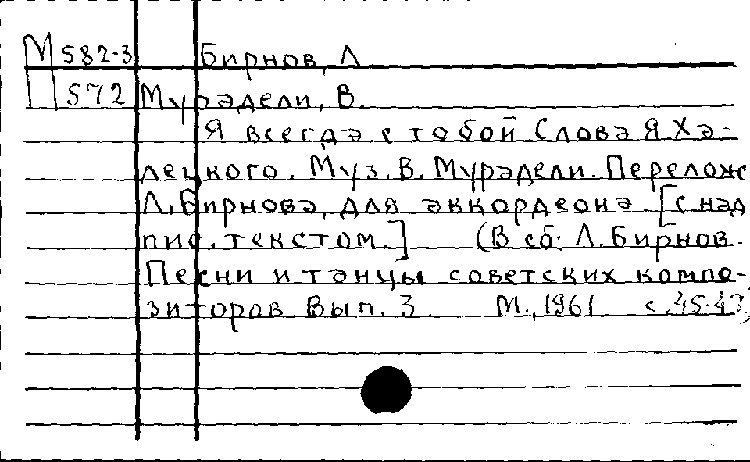 М 582-3 Бирнов, Л
572 Мурадели, В.
Я всегда с тобой Слова Я Ха-
лецкого. Муз. В. Мурадели. Перелож
Л. Бирнова, для аккордеона [с над
пис. текстом.] (В сб: Л. Бирнов.
Песни и танцы советских компо-
зиторов Вып. 3 М., 1961 с. 45-47)